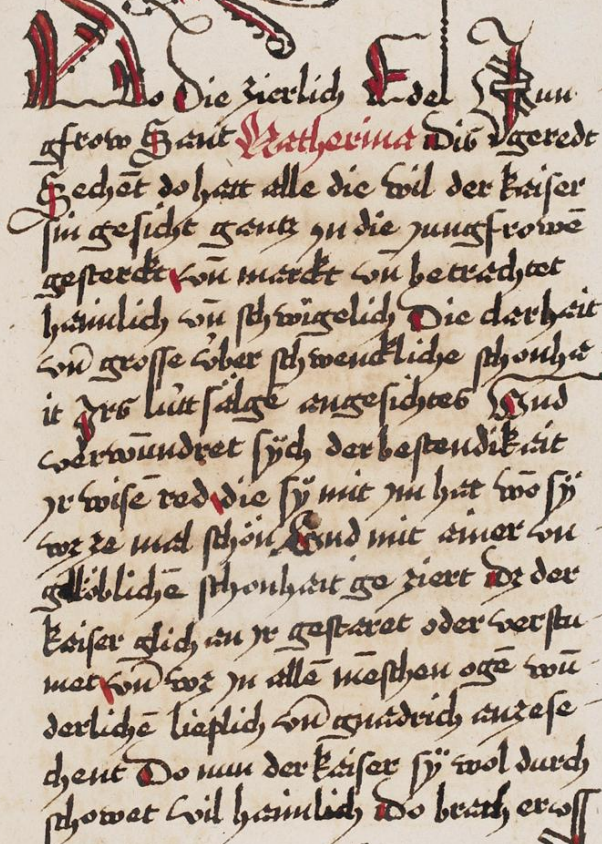 Do die zierlich Edel Jun
gfrow Sant Katherina dis geredt
Sechēt do hatt alle die wil der kaiser
sin gesicht gantz in die jungfrowē
gesterckt vn̄ marckt vn̄ betrachtet
haimlich vn̄ schwigelich Die clarhait
vn̄ grosse über schwenckliche schonha
it Jrs lüttsälgē angesichtes Und
verwundret sÿch der bestendikait
jr wisē red die sÿ mit im hat wō sÿ
wz ze mal schön Und mit ainer vn
globlichē schonhait ge ziert Dz der
kaiser glich an jr gestaret oder verstu
met vn̄ wz in allē mēschen ogē wū
derlichē lieplich vn̄ gnadrich an ze se
chent Do nun der kaiser sÿ wol durch
schowet vil haimlich Do brach er vss